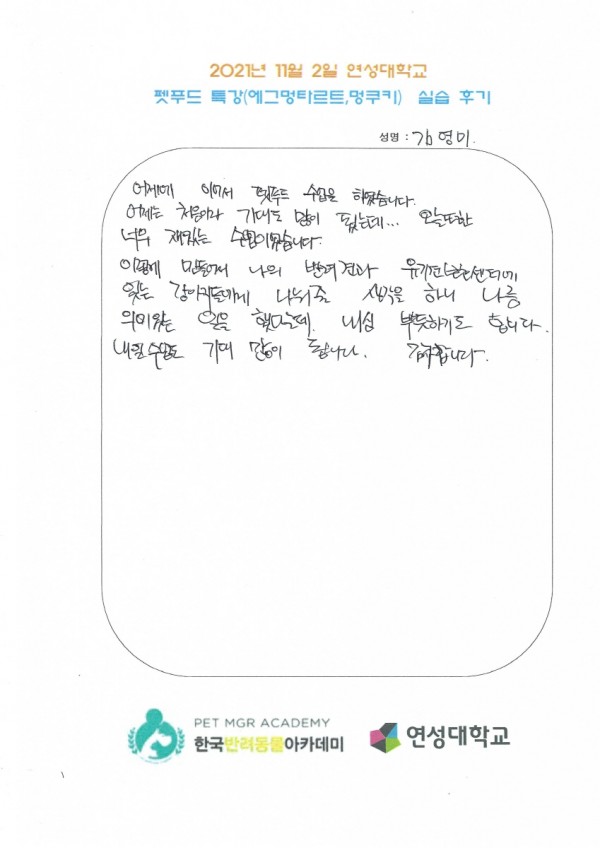 2021년 11월 2일 연성대학교
펫푸드 특강(에그멍타르트,멍쿠키) 실습 후기
성명 : 김영미.
어제에 이어서 펫푸드 수업을 하였습니다.
어제는 처음이라 기대도 많이 됬는데... 오늘또한
너무 재밌는 수업이였습니다.
만들어서 나의 반려견과 유기견보호센터에
있는 강아지들에게 나눠줄 생각을 하니 나름
의미있는 일을 했다는데. 내심 뿌듯하기도 합니다.
내일수업도 기대 많이 됩니다. 감사합니다.
PET MGR ACADEMY
한국반려동물아카데미
연성대학교